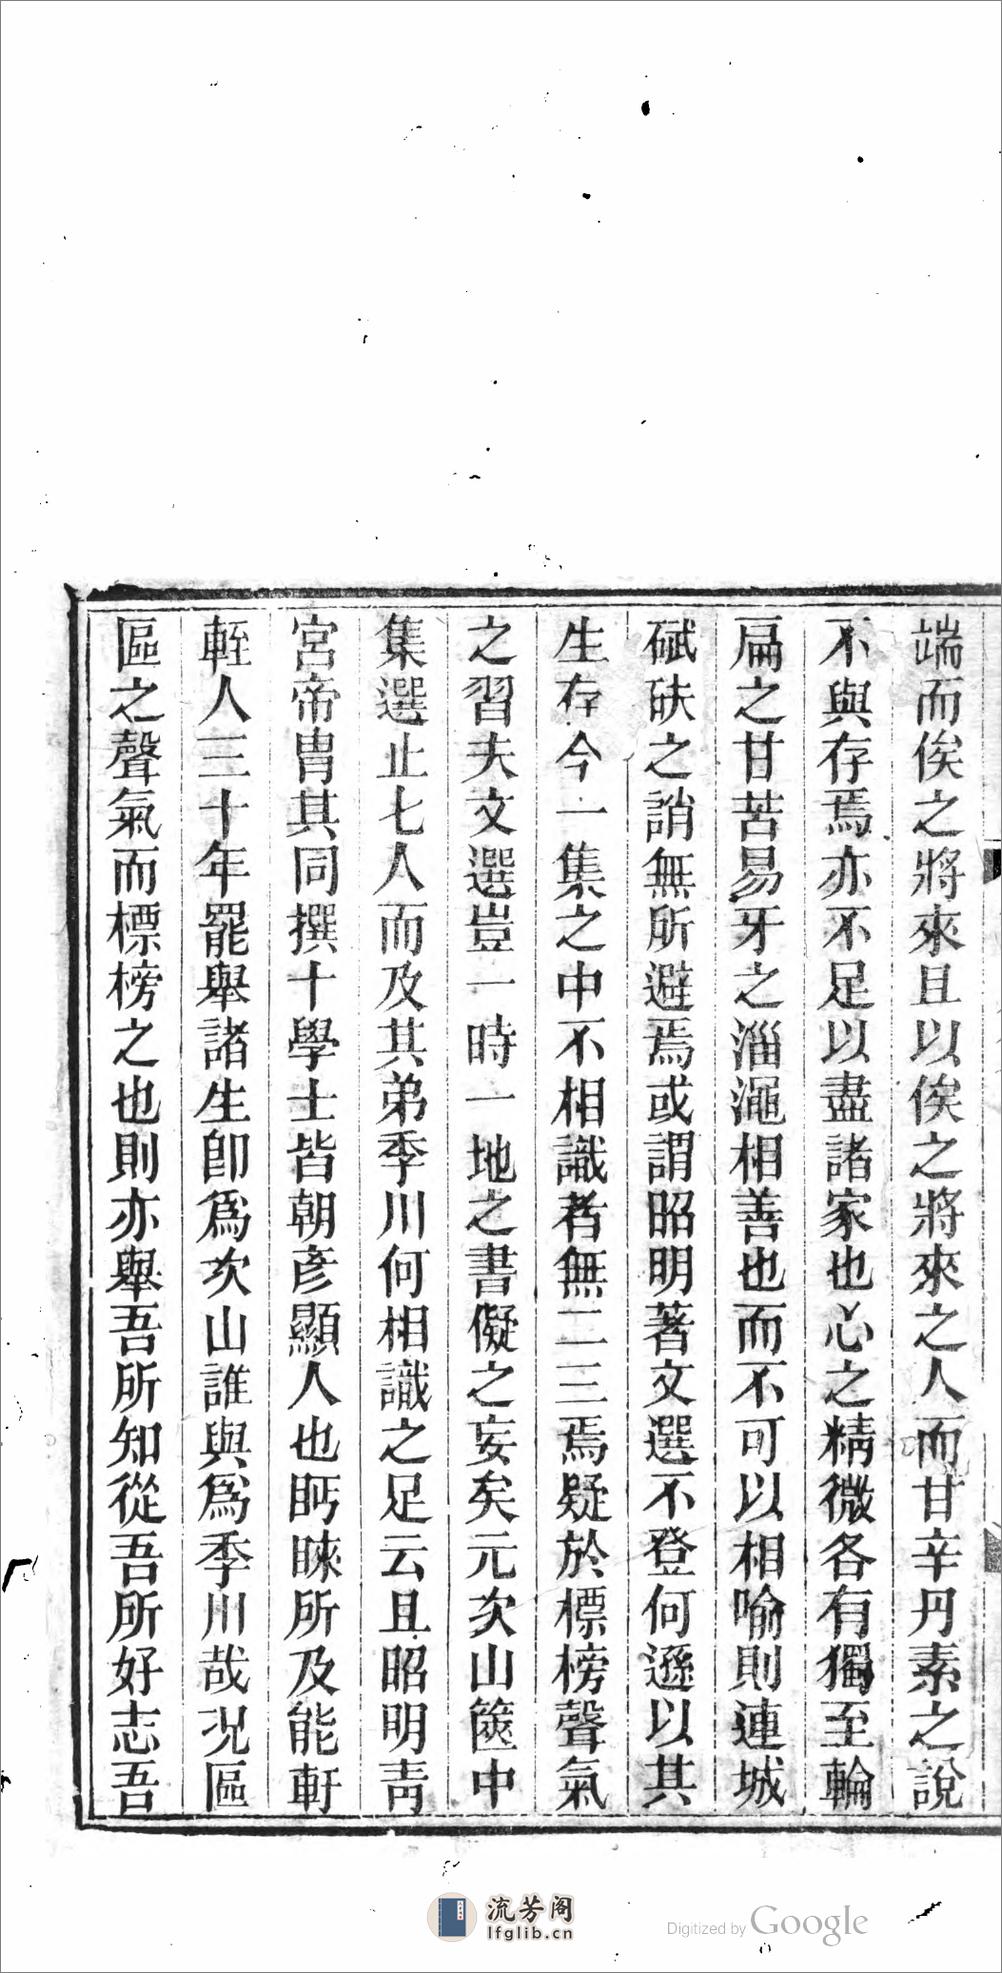 端而俟之將來且以俟之將來之人而甘辛丹素之說
不與存焉亦不足以盡諸家也心之精微各有獨至輪
扁之甘苦易牙之淄澠相善也而不可以相喻則連城
碔砆之誚無所避焉或謂昭明著文選不登何遜以其
生存今一集之中不相識者無二三焉疑於標榜聲氣
之習夫文選豈一時一地之書儗之妄矣元次山篋中
集選止七人而及其弟季川何相識之足云且昭明靑
宮帝胄其同撰十學士皆朝彥顯人也眄睞所及能軒
輊人三十年罷舉諸生卽爲次山誰與爲季川哉况區
區之聲氣而標榜之也則亦舉吾所知從吾所好志吾
流芳阁
lfglib.cn
Digitized by Google